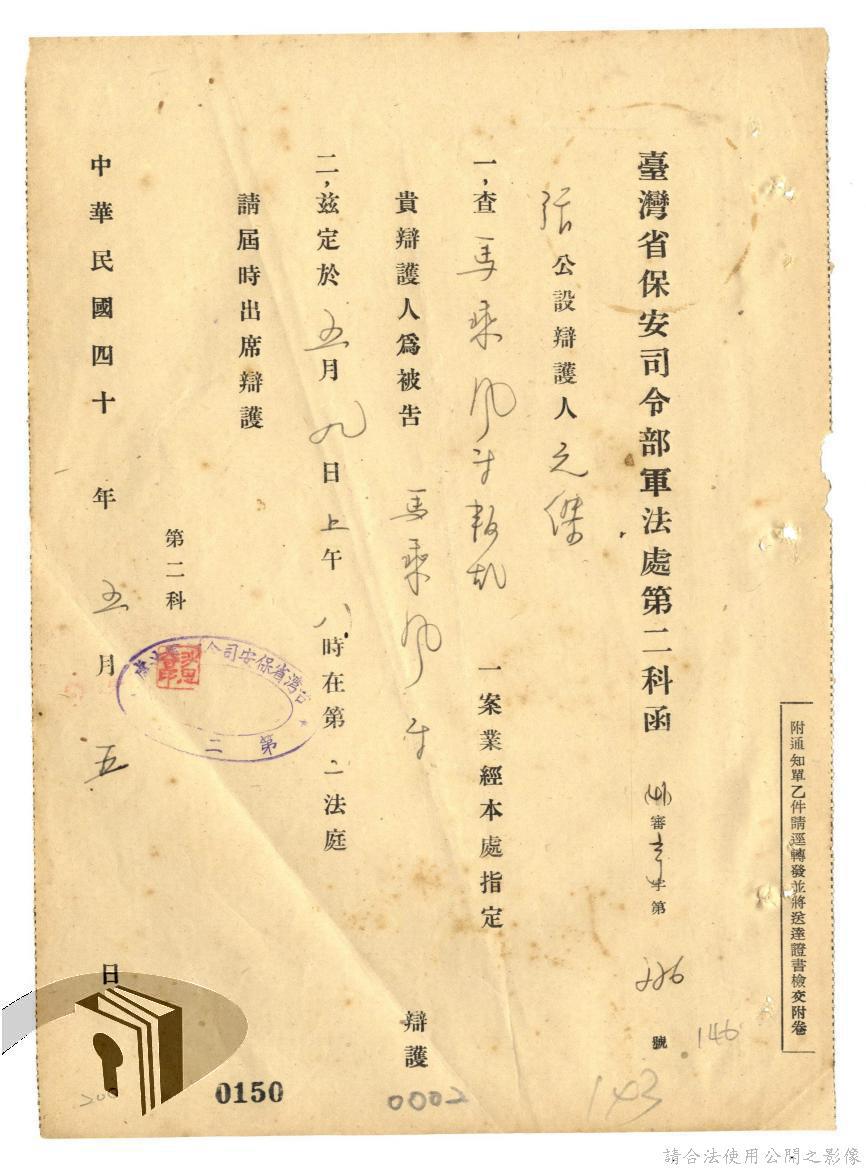 附通知單乙件請逕轉發並將送達證書檢交附卷
臺灣省保安司令部軍法處第二科函 (41)審 字第 號
張公設辯護人元傑
一，查 馬乘風等叛亂 一案業經本處指定
貴辯護人爲被告 馬乘風等 辯護
二，茲定於五月九日上午八時在第二法庭
請屆時出席辯護
第二科
台灣省保安司令
第二
中華民國四十一年五月五日
146
143
0002
0150
200
請合法使用公開之影像